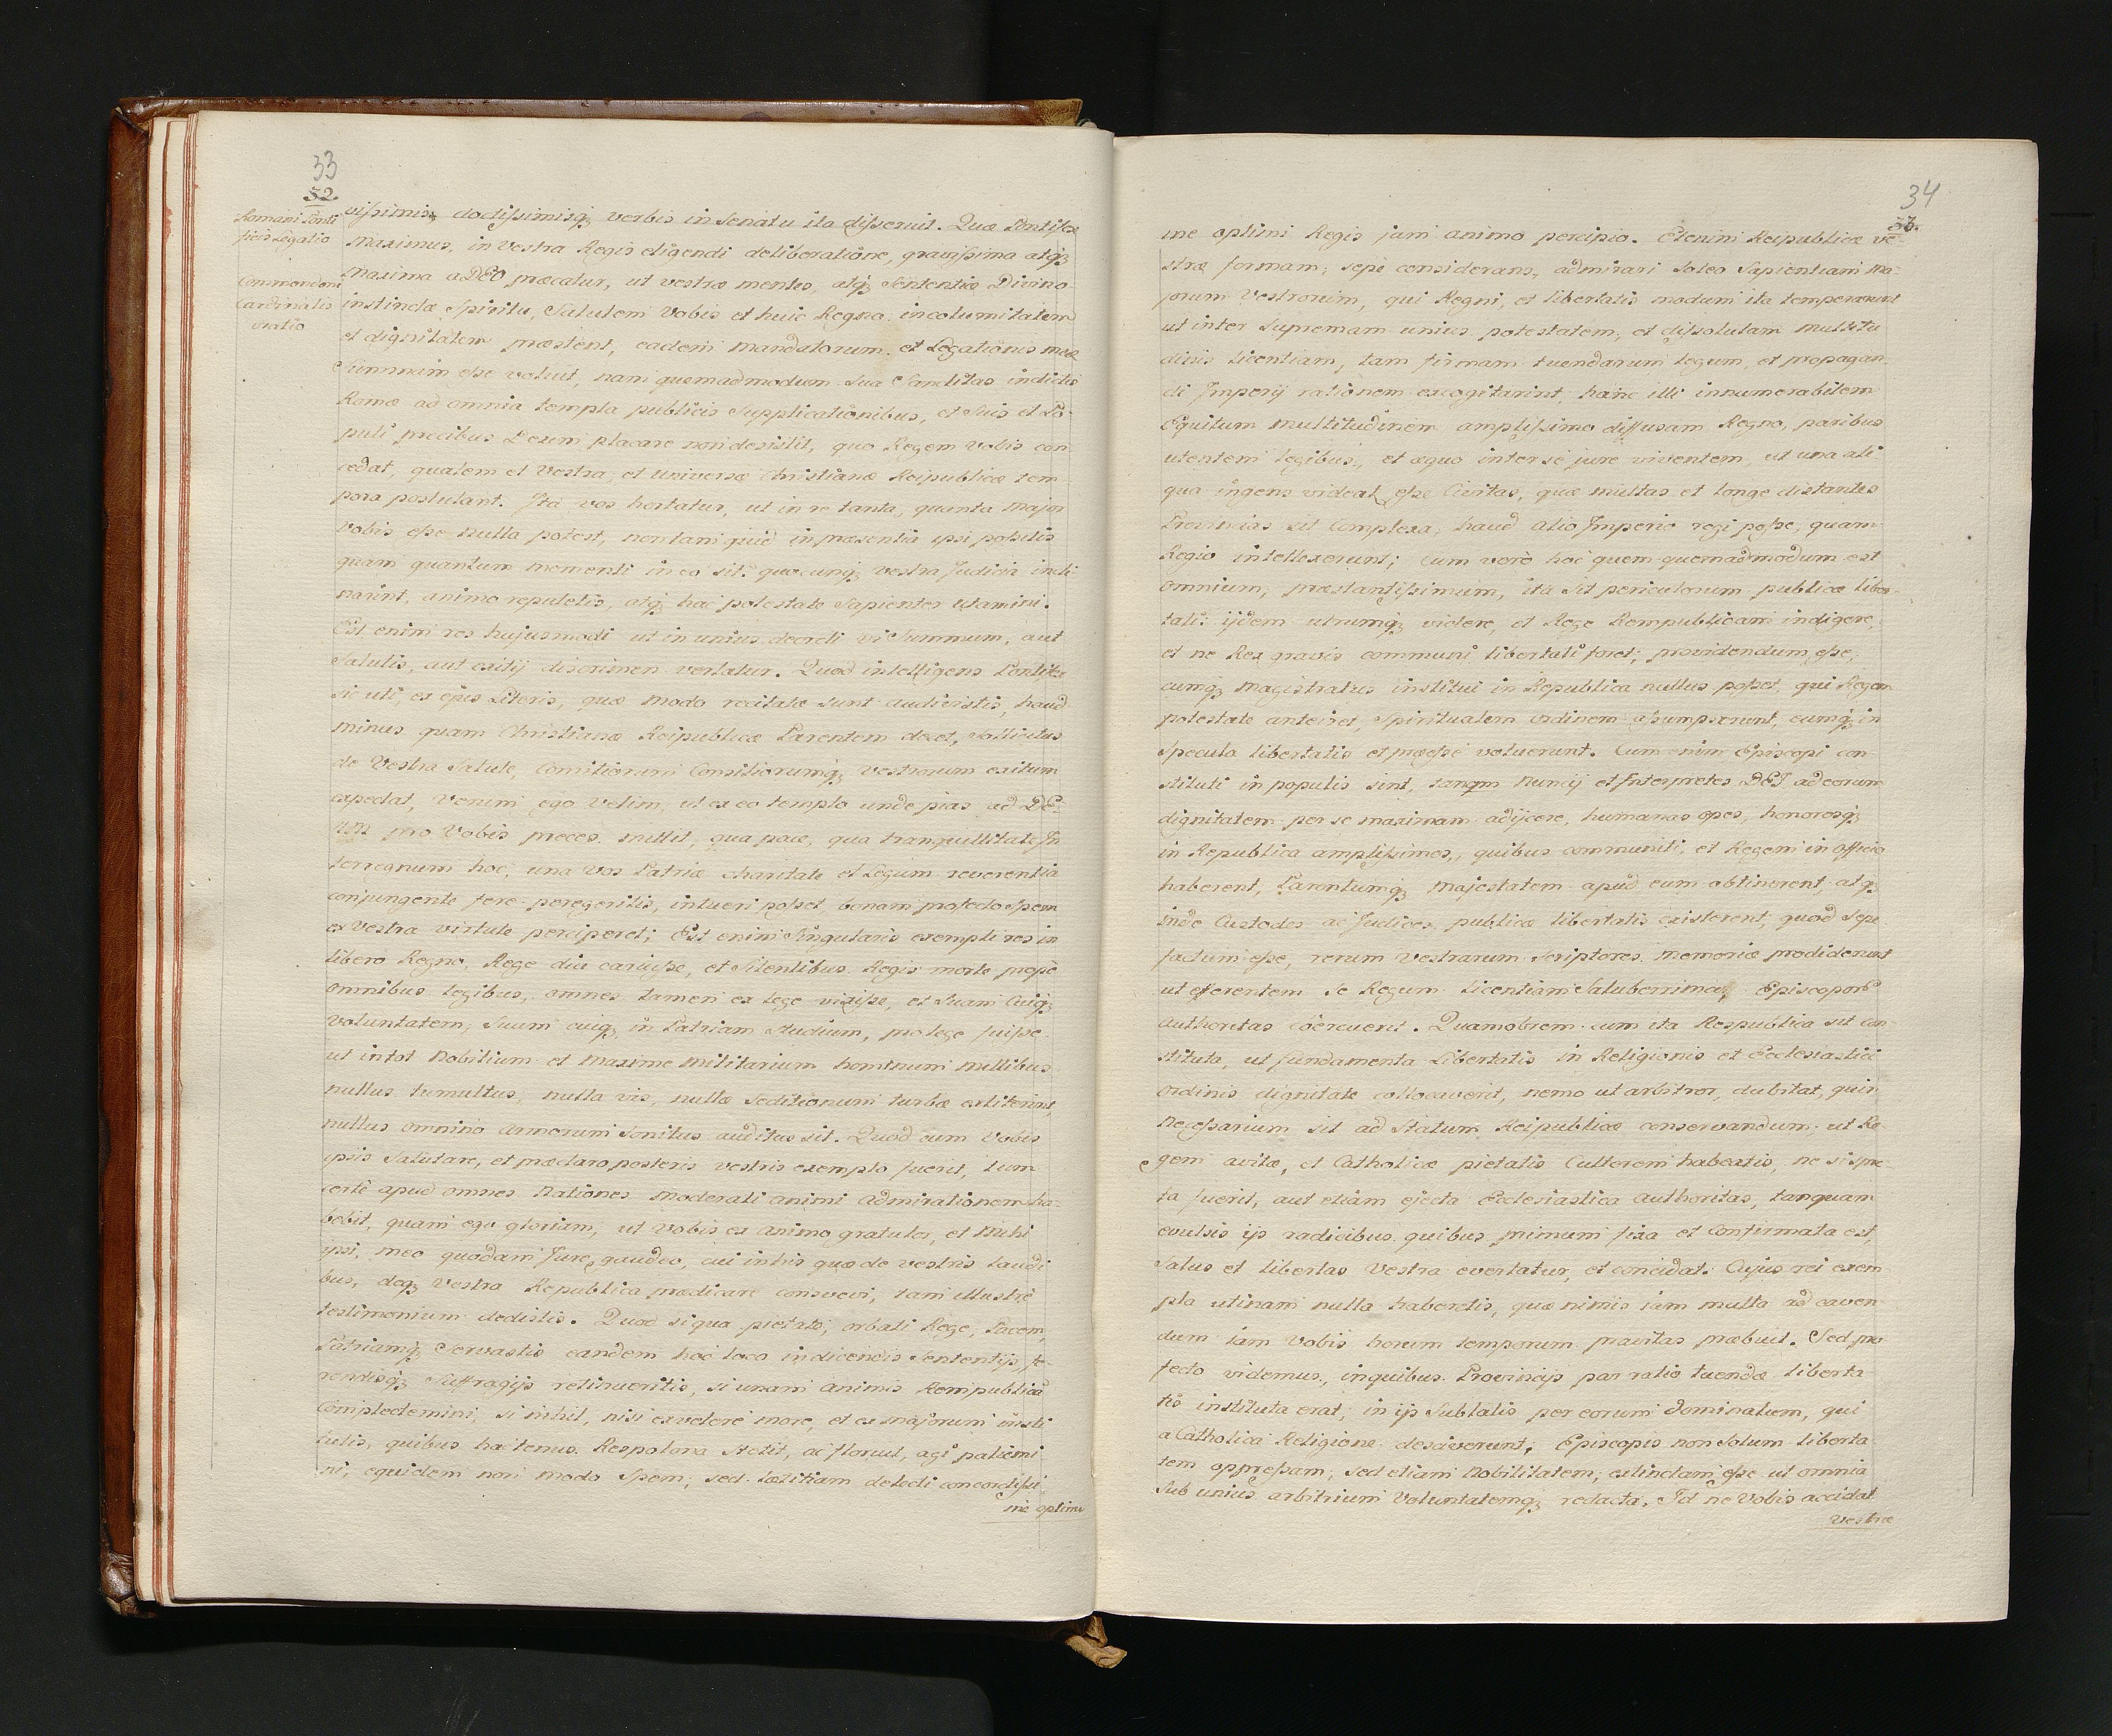 33
52.
Romani Ponti
ficis Legatio
Commendoni
Cardinalis
oratio
vissimis doctissimisq verbis in Senatu ita disseruit. Quæ Pontifex
Maximus, in vestra Regis eligendi deliberatione, gravissima atq
maxima a DEO præcatur, ut vestræ mentes, atq Sententiæ Divino
instinctæ Spiritu, Salutem Vobis et huic Regno incolumitatem
et dignitatem præstent, eadem mandatorum et Legationis meæ
Summam esse voluit, nam quemadmodum Sua Sanctitas indictis
Romæ ad omnia templa publicis Supplicationibus, et Suis et Po-
puli precibus Deum placare non desistit, quo Regem Vobis con
cedat, qualem et Vestra, et universæ Christianæ Reipublicæ tem
pora postulant. Ita vos hortatur, ut in re tanta, quanta major
Vobis esse nulla potest, non tam quid in præsentia ipsi possitis
quam quantum momenti in eo sit quocunq vestra Judicia incli
narint, animo reputetis, atq hac potestate Sapienter utamini.
Est enim res hujusmodi ut in unius decreti vi Summum, aut
Salutis, aut exitij discrimen vertatur. Quod intelligens Pontifex
sicuti, ex ejus Literis, quæ modo recitatæ sunt audivistis, haud
minus quam Christianæ Reipublicæ Parentem decet, Sollicitus
de Vestra Salute, Comitiorum Consiliorumq vestrorum exitum
expectat, Verum ego Velim, ut ex eo templo unde pias ad DE-
UM pro Vobis preces mittit, qua pace, qua tranquillitate In
terregnum hoc, una vos Patriæ charitate et Legum reverentia
conjungente fere peregeritis, intueri posset bonam profecto Spem
ex Vestra virtute perciperet; Est enim Singularis exempli res in
libero Regno, Rege diu caruisse, et Silentibus Regis morte prope
omnibus legibus, omnes tamen ex lege vixisse, et Suam Cuiq
voluntatem, Suum cuiq in Patriam Studium, pro lege fuisse
ut in tot Nobilium et maxime militarium hominum millibus
nullus tumultus, nulla vis, nullæ seditionum turbæ extiterint,
nullus omnino armorum Sonitus auditus sit. Quod cum Vobis
ipsis Salutare, et præclaro posteris vestris exemplo fuerit, tum
certè apud omnes Nationes moderati animi admirationem ha-
bebit, quam ego gloriam, ut vobis ex animo gratulor, et mihi
ipsi, meo quodam Jure gaudeo, cui in his quæ de vestris laudi
bus, deq Vestra Republica prædicare consuevi, tam illustre
testimonium dedistis. Quod si qua pietate, orbati Rege, Pacem
Patriamq Servastis eandem hoc loco in dicendis Sententijs, fe-
rendisq Suffragijs retinueritis, si unam animis Rempublicã
complectemini, si nihil, nisi ex vetere more, et ex majorum insti
tutis, quibus hactenus Respolona stetit, ac floruit, agi patiemi
ni, equidem non modo Spem, sed lætitiam delecti concordissi
me optimi
34
53.
me optimi Regis jam animo percipio. Etenim Reipublicæ ve-
stræ formam, sepè considerans, admirari Soleo Sapientiam Ma-
jorum Vestrorum, qui Regni, et libertatis modum ita temperarunt
ut inter Supremam unius potestatem, et dissolutam multitu
dinis licentiam, tam firmam tuendarum legum, et propagan
di Imperij rationem excogitarint, hanc illi innumerabilem
Equitum multitudinem amplissimo diffusam Regno, paribus
utentem legibus, et æquo inter sè jure viventem, ut una ali
qua ingens videat esse Civitas, quæ multas et longe distantes
Provincias sit complexa, haud alio Imperio regi posse, quam
Regio intellexerunt; cum verò hoc quem quemadmodum est
omnium, præstantissimum, ita sit periculorum publicæ liber-
tati: ijdem utrumq videre, et Rege Rempublicam indigere,
et ne Rex gravis communi libertati foret, providendum esse,
cumq Magistratus institui in Republica nullus posset, qui Regem
potestate anteiret, Spiritualem ordinem assumpserunt, eumq in
Specula libertatis et præesse voluerunt. Cum enim Episcopi con
stituti in populis sint, tanqm Nuncij et Interpretes DEI ad eorum
dignitatem per se maximam adijcere, humanas opes, honoresq
in Republica amplissimos, quibus communiti, et Regem in officio
haberent, Parentumq Majestatem apud eum obtinerent, atq
inde Custodes ac Judices publicæ libertatis existerent, quod Sepe
factum esse, rerum Vestrarum Scriptores memoriæ prodiderunt
ut efferentem Se Regum licentiam Saluberrima Episcoporũ
authoritas coercuerit. Quamobrem cum ita Respublica sit con
stituta, ut fundamenta Libertatis in Religionis et Ecclesiastici
ordinis dignitate collocaverit, nemo ut arbitror, dubitat, quin
Necessarium sit ad Statum Reipublicæ conservandum, ut Re
gem avitæ, et Catholicæ pietatis Cultorem habeatis, ne si spre
ta fuerit, aut etiam ejecta Ecclesiastica authoritas, tanquam
evulsis ijs radicibus quibus primum fixa et confirmata est,
Salus et libertas Vestra evertatur, et concidat. Cujus rei exem
pla utinam nulla haberetis, quæ nimis iam multa ad caven
dum iam Vobis horum temporum pravitas præbuit. Sed pro
fecto videmus, in quibus Provincijs par ratio tuendæ liberta
tis instituta erat, in ijs Sublatis per eorum dominatum, qui
a Catholica Religione desciverunt, Episcopis non Solum liberta
tem oppressam, sed etiam Nobilitatem, extinctam esse ut omnia
Sub unius arbitrium Voluntatemq redacta. Id ne Vobis accidat
Vestræ